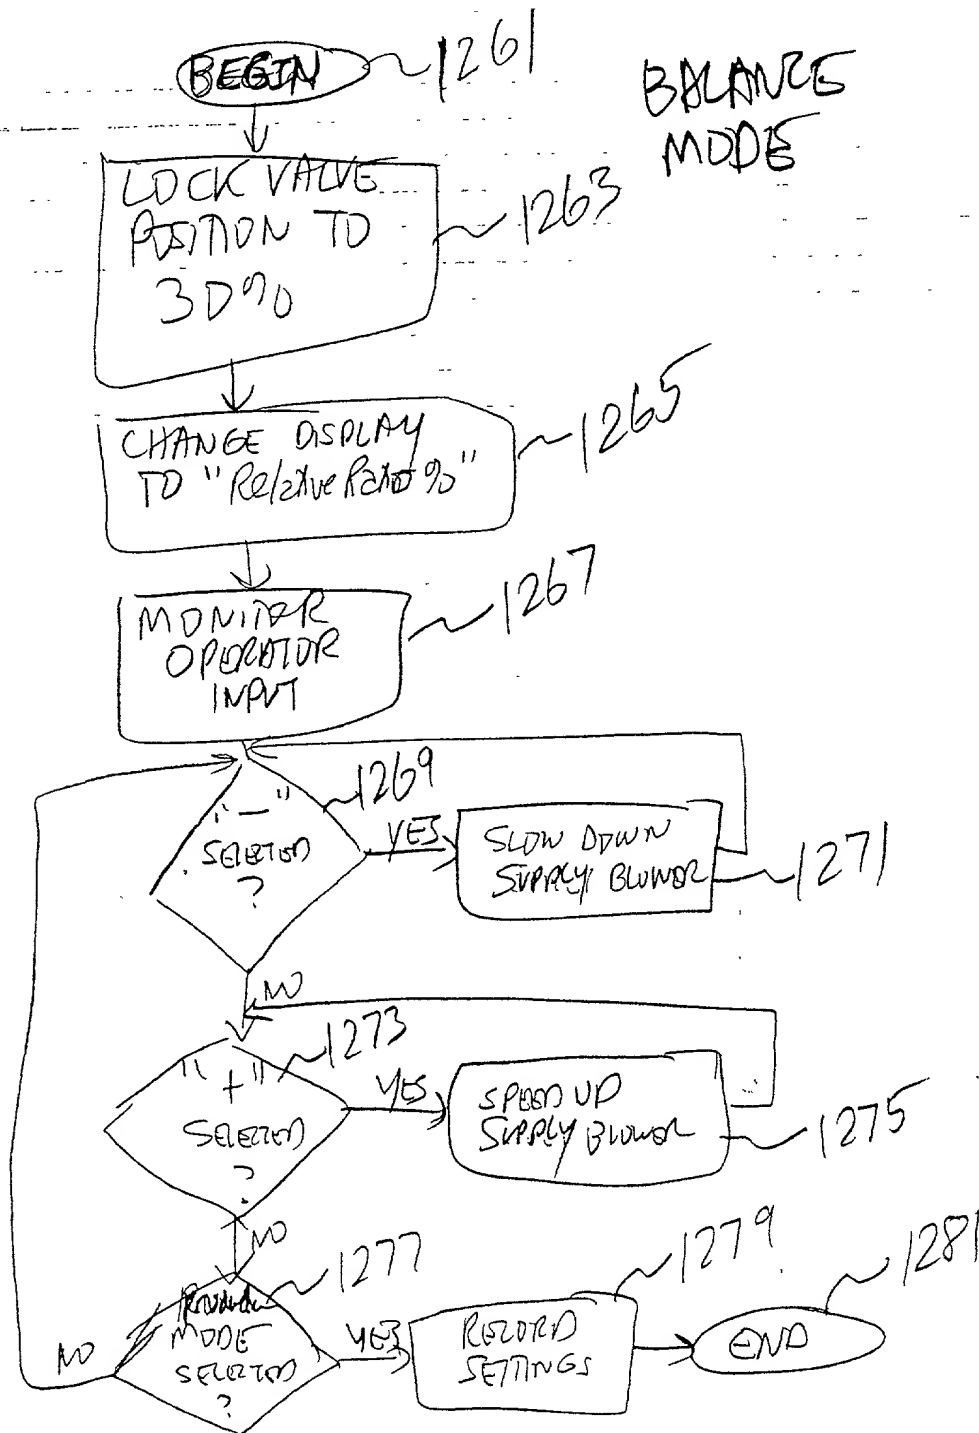 BEGIN
1261
BALANCE
MODE
LOCK VALVE
POSITION TO
30%
1263
CHANGE DISPLAY
TO "Relative Ratio %"
1265
MONITER
OPERATOR
INPUT
1267
"—"
SELECTED
?
1269
YES
SLOW DOWN
SUPPLY BLOWER
1271
NO
"+"
SELECTED
?
1273
YES
SPEED UP
SUPPLY BLOWER
1275
NO
MODE
SELECTED
?
1277
NO
YES
RECORD
SETTINGS
1279
END
1281